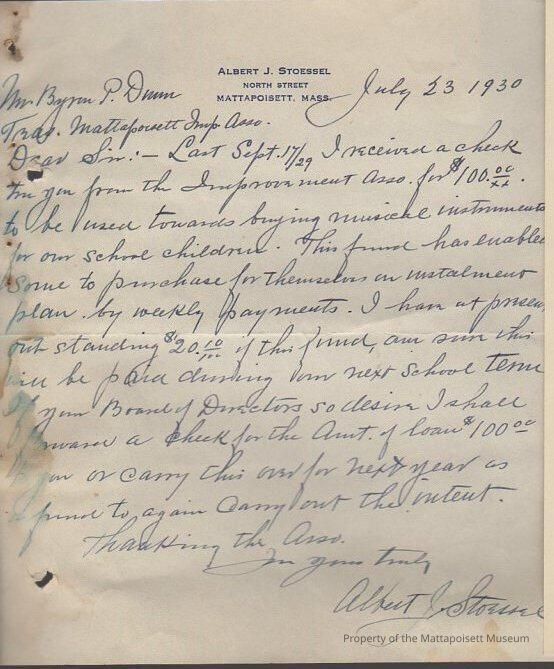 ALBERT J. STOESSEL
NORTH STREET
MATTAPOISETT, MASS.
July 23 1930
Mr Byron P. Dunn
Treas. Mattapoisett Imp Asso.
Dear Sir:- Last Sept. 17/29 I received a check
from you from the Improvement Asso. for $100.00/xx.
to be used towards buying musical instruments
for our school children. This fund has enabled
some to purchase for themselves on instalment
plan by weekly payments. I have at present
outstanding $20.10/100 of this fund, am sure this
will be paid during our next School term
If your Board of Directors so desire I shall
forward a check for the Amt. of loan $100.00
to you or carry this over for next year as
a fund to again carry out the intent.
Thanking the Asso.
I'm yours truly
Albert J. Stoessel
Property of the Mattapoisett Museum